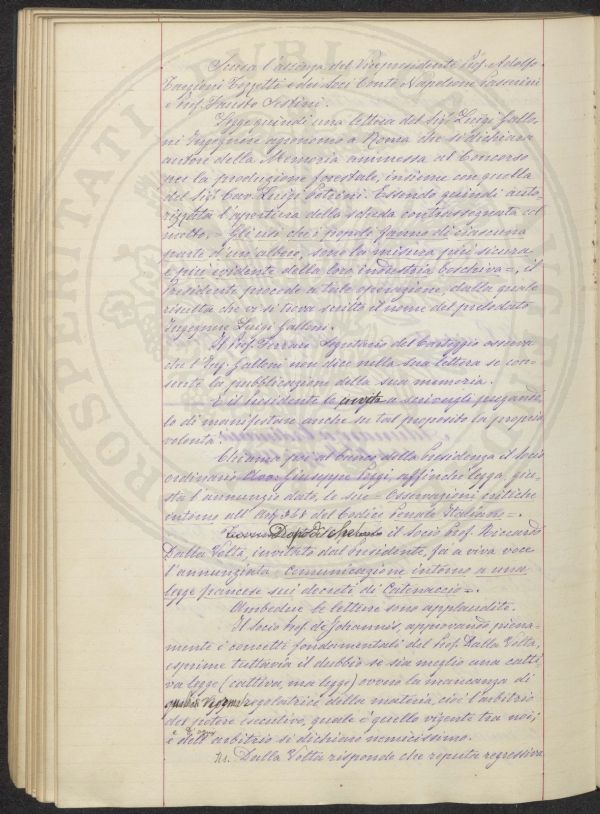 Scusa l'assenza del Vicepresidente Prof. Adolfo
Targioni Tozzetti e dei Soci Conte Napoleone Passerini
e Prof. Fausto Sestini.
Legge quindi una lettera del Sig. Luigi Gallo-
ni Ingegnere agronomo a Roma che si dichiara
autore della Memoria ammessa al Concorso
per la produzione forestale, insieme con quella
del Sig. Cav. Luigi Potrini. Essendo quindi auto-
rizzata l'apertura della scheda contrassegnata col
motto. Gli usi che i popoli fanno di ciascuna
parte d'un albero, sono la misura più sicura
e più evidente della loro industria boschiva =, il
Presidente procede a tale operazione, dalla quale
risulta che vi si trova scritto il nome del prelodato
Ingegnere Luigi Galloni.
Il Prof. Ferrari Segretario del Carteggio osserva
che l'Ing. Galloni non dice nella sua lettera se con-
sente la pubblicazione della sua memoria.
E il Presidente lo invita a scrivergli pregando-
lo di manifestare anche su tal proposito la propria
volontà.
Chiama poi al banco della Presidenza il socio
ordinario Avv. Giuseppe Poggi, affinchè legga, giu-
sta l'annunzio dato, le sue = Osservazioni critiche
intorno all'Art. 268 del Codice Penale Italiano =.
Dopo di che il socio Prof. Riccardo
Dalla Volta, invitato dal Presidente, fa a viva voce
l'annunziata comunicazione intorno a una
legge francese sui decreti di Catenaccio =.
Ambedue le letture sono applaudite.
Il Socio Prof. de Johannis, approvando piena-
mente i concetti fondamentali del Prof. Dalla Volta,
esprime tuttavia il dubbio se sia meglio una catti-
va legge (cattiva, ma legge) ovvero la mancanza di
qualsiasi legge regolatrice della materia, cioè l'arbitrio
del potere esecutivo, quale è quello vigente tra noi;
e dell'arbitrio si dichiara nemicissimo.
Dalla Volta risponde che reputa regressiva